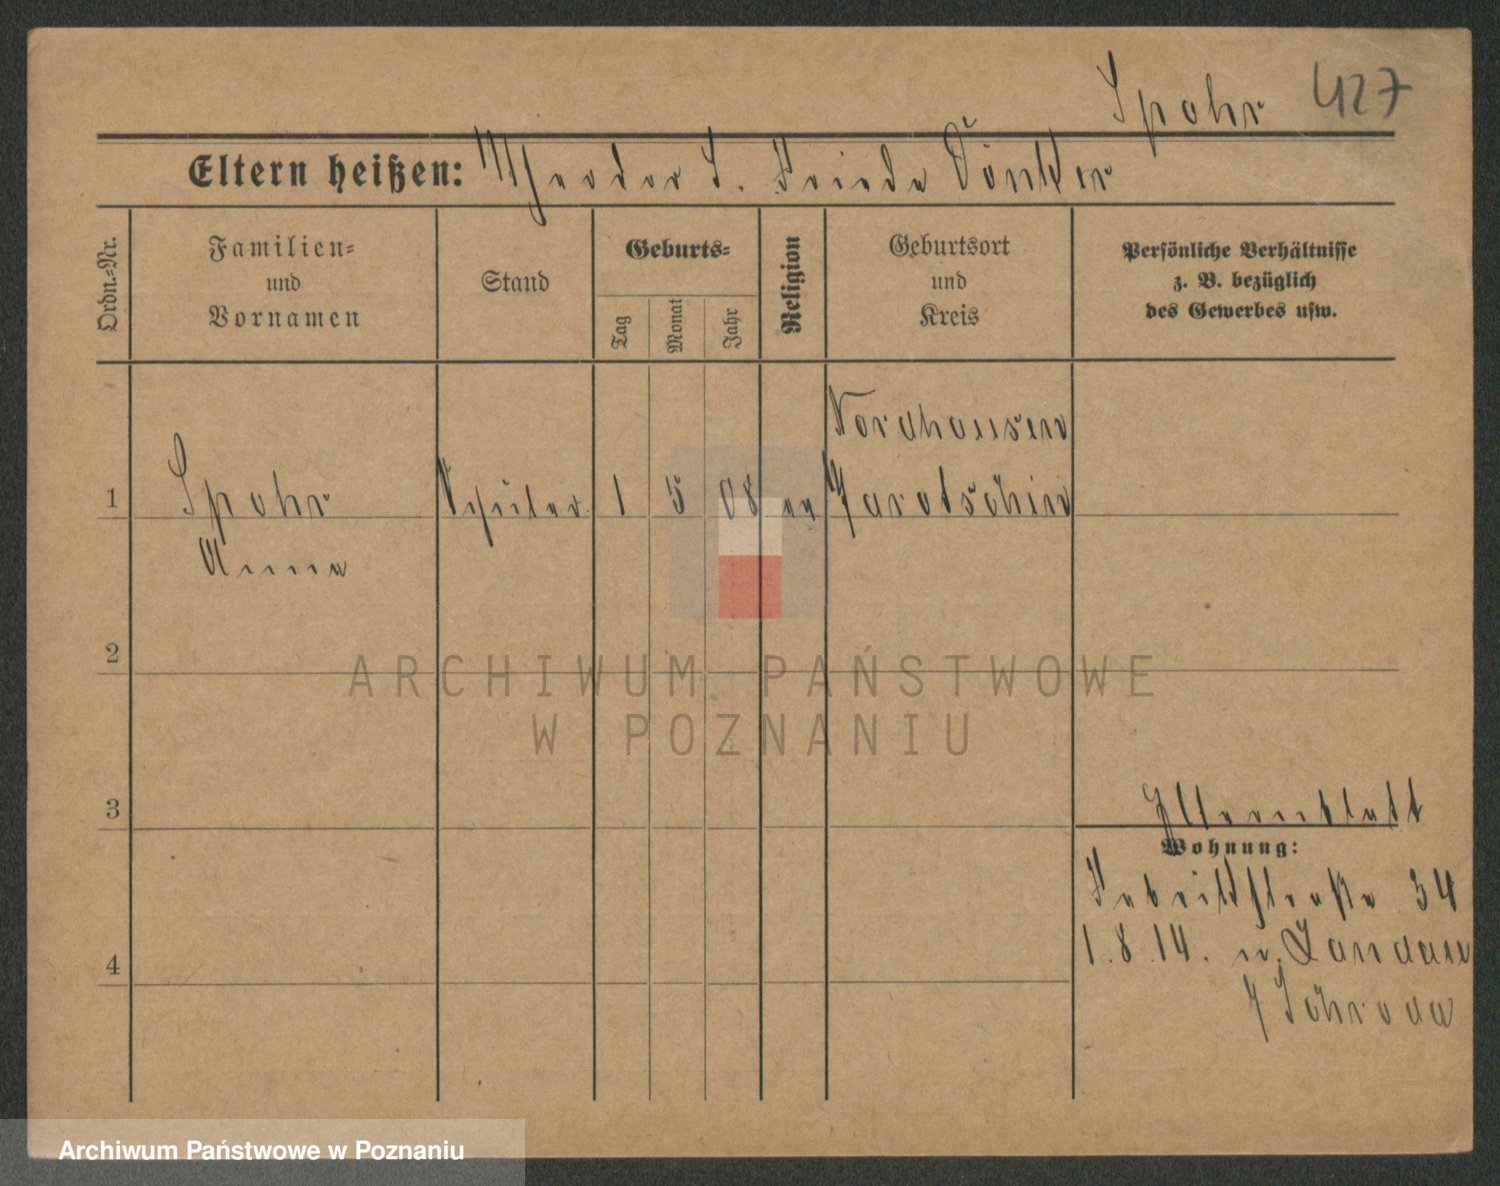 Spohr 427
Eltern heißen: Theodor S. Frieda Dönker
Ordn.-Nr.
Familien-
und
Vornamen
Stand
Geburts-
Tag
Monat
Jahr
Religion
Geburtsort
und
Kreis
Persönliche Verhältnisse
z. B. bezüglich
des Gewerbes usw.
Nordhausen
1 Spohr Schüler 1 5 08 ev Jarotschin
Anna
2
3
Elternblatt
Wohnung:
Fabrikstraße 34
4
1.8.14. n. Zandau
Schroda
ARCHIWUM PAŃSTWOWE
W POZNANIU
Archiwum Państwowe w Poznaniu